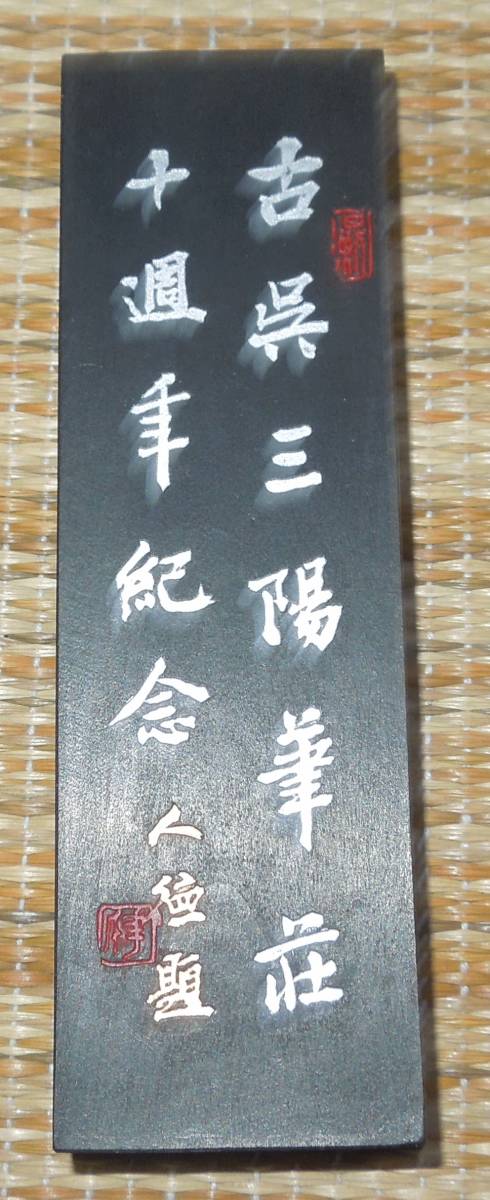 古吳三陽筆莊
十週年紀念
人德題